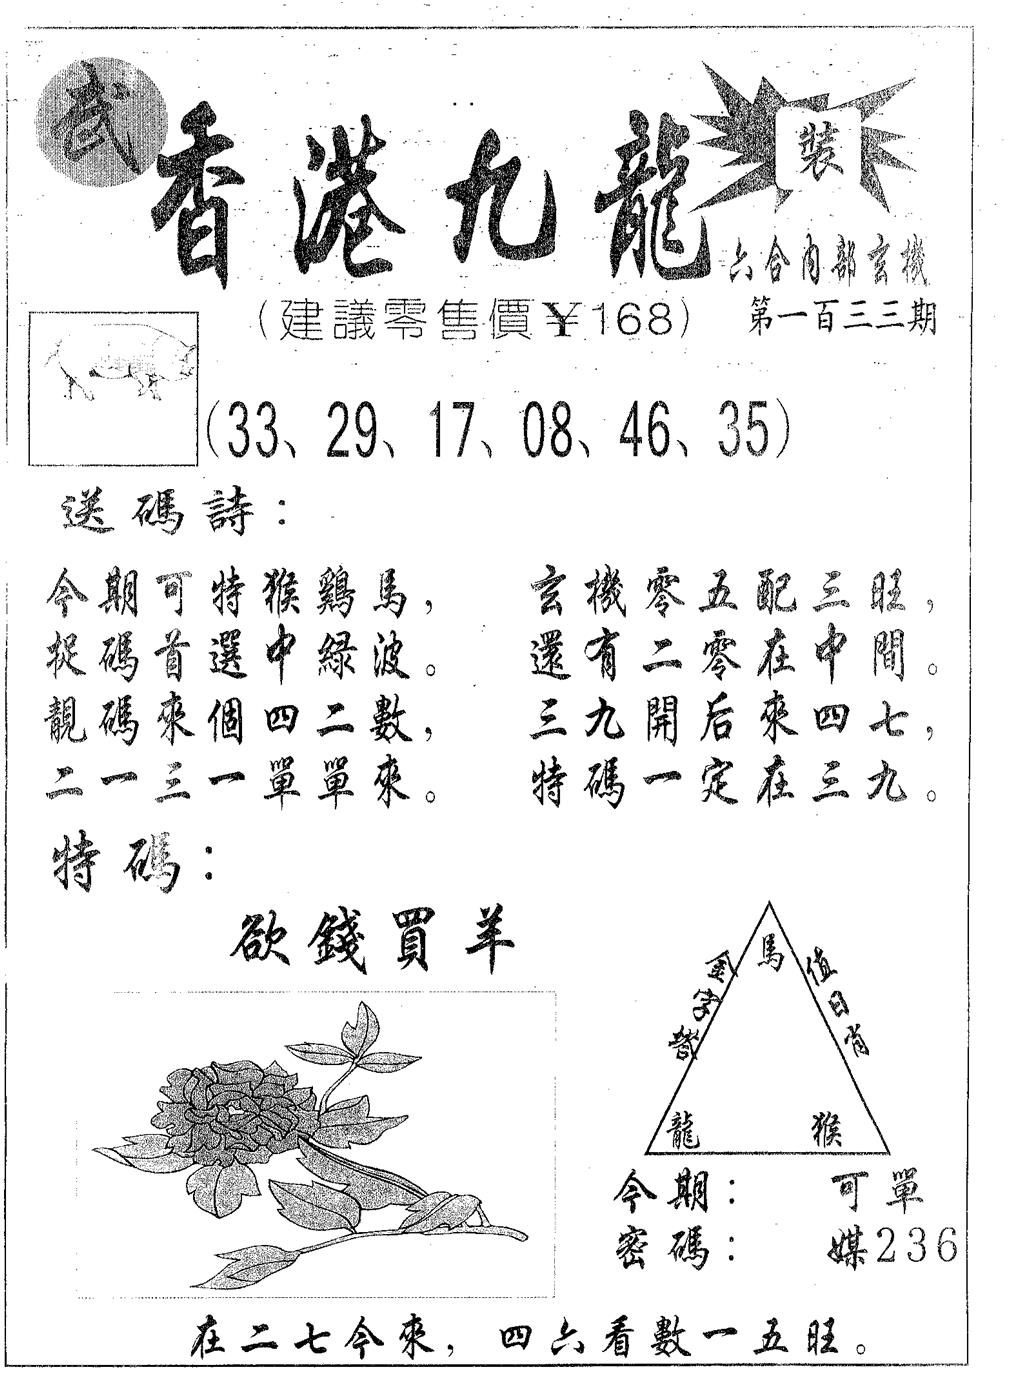 武
香港九龍
裝
六合內部玄機
(建議零售價¥168)
第一百三三期
(33、29、17、08、46、35)
送碼詩:
今期可特猴鷄馬,
捉碼首選中綠波。
靚碼來個四二數,
二一三一單單來。
玄機零五配三旺,
還有二零在中間。
三九開后來四七,
特碼一定在三九。
特碼:
欲錢買羊
金字塔
馬
值日肖
龍
猴
今期: 可單
密碼: 媒236
在二七今來, 四六看數一五旺。